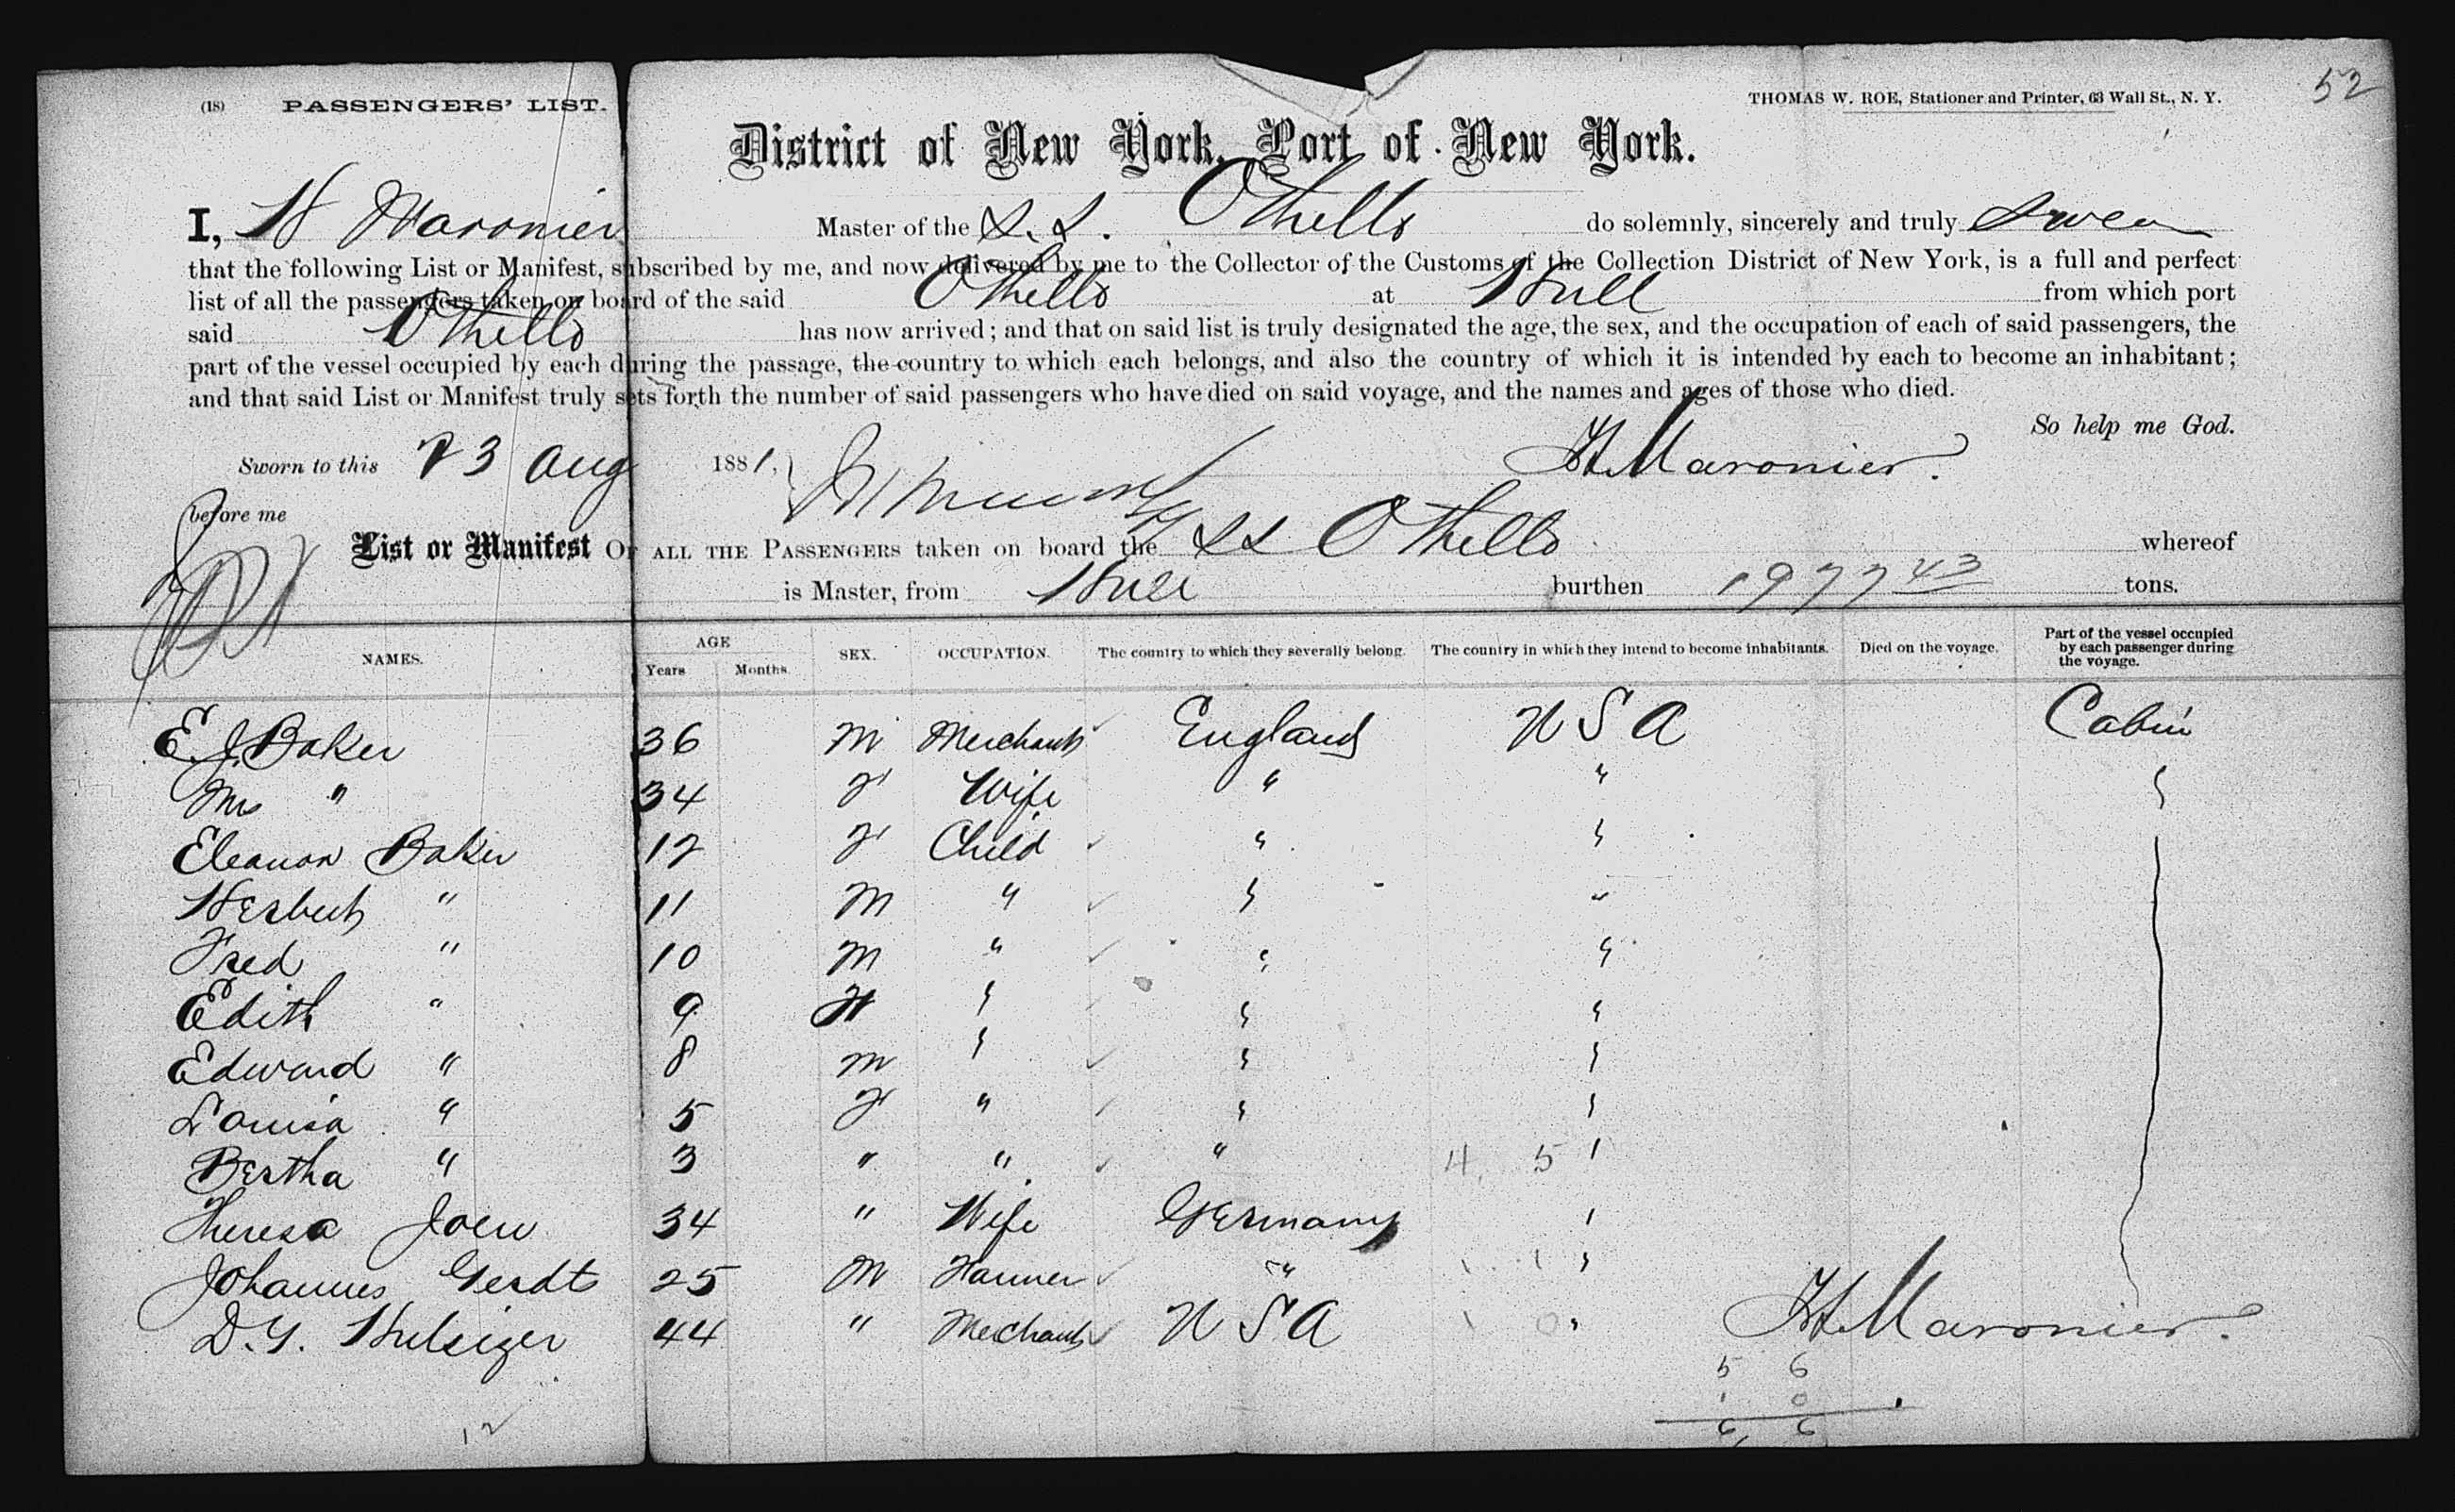 (18) PASSENGERS' LIST.
THOMAS W. ROE, Stationer and Printer, 63 Wall St., N. Y.
52
District of New York, Port of New York.
I, H Maronier Master of the S. S. Othello do solemnly, sincerely and truly Swear
that the following List or Manifest, subscribed by me, and now delivered by me to the Collector of the Customs of the Collection District of New York, is a full and perfect
list of all the passengers taken on board of the said Othello at Hull from which port
said Othello has now arrived; and that on said list is truly designated the age, the sex, and the occupation of each of said passengers, the
part of the vessel occupied by each during the passage, the country to which each belongs, and also the country of which it is intended by each to become an inhabitant;
and that said List or Manifest truly sets forth the number of said passengers who have died on said voyage, and the names and ages of those who died.
So help me God.
Sworn to this 23 Aug 1881, H Maronier.
before me
List or Manifest OF ALL THE PASSENGERS taken on board the SS Othello whereof
is Master, from Hull burthen 1977 43 tons.
NAMES. AGE Years Months. SEX. OCCUPATION. The country to which they severally belong. The country in which they intend to become inhabitants. Died on the voyage. Part of the vessel occupied by each passenger during the voyage.
E. J. Baker 36 M Merchant England U S A Cabin
Mrs " 34 F Wife " "
Eleanor Baker 12 F Child " "
Herbert " 11 M " " "
Fred " 10 M " " "
Edith " 9 F " " "
Edward " 8 M " " "
Louisa " 5 F " " "
Bertha " 3 " " " 4 5 "
Theresa 34 " Wife Germany "
Johannes Gerdts 25 M Farmer " 1 1 "
D. Y. Hulsizer 44 " Merchant U S A 1 0 " H Maronier.
5 6
1 0
6 6
12